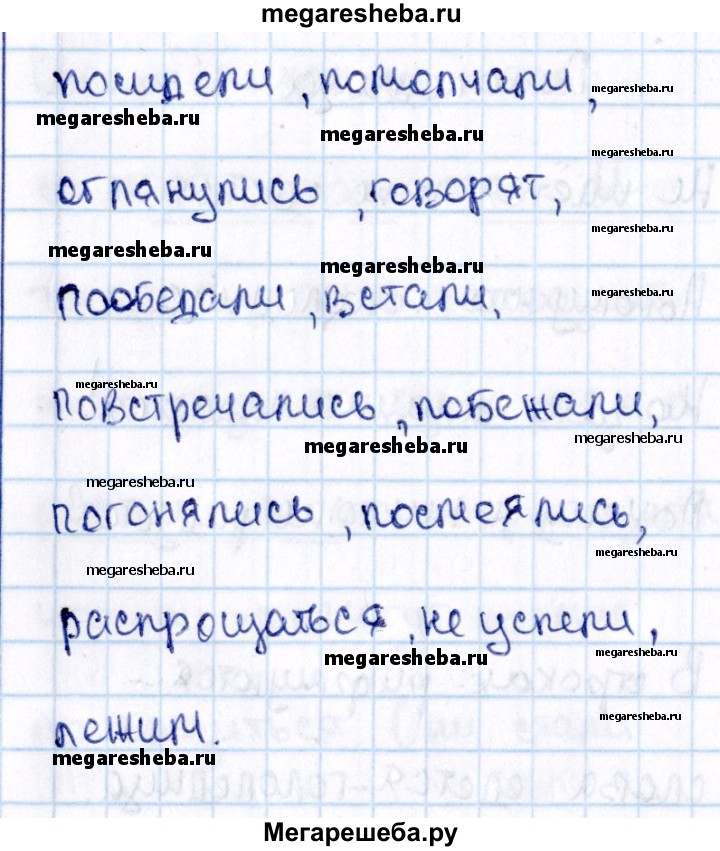 megaresheba.ru
посидели, помолчали, megaresheba.ru
megaresheba.ru megaresheba.ru
megaresheba.ru
оглянулись, говорят,
megaresheba.ru
megaresheba.ru megaresheba.ru
пообедали, встали, megaresheba.ru
megaresheba.ru
повстречались, побежали,
megaresheba.ru megaresheba.ru
megaresheba.ru
погонялись, посмеялись,
megaresheba.ru
megaresheba.ru
распрощаться, не успели,
megaresheba.ru megaresheba.ru
лежим. megaresheba.ru
megaresheba.ru
Мегарешеба.ру